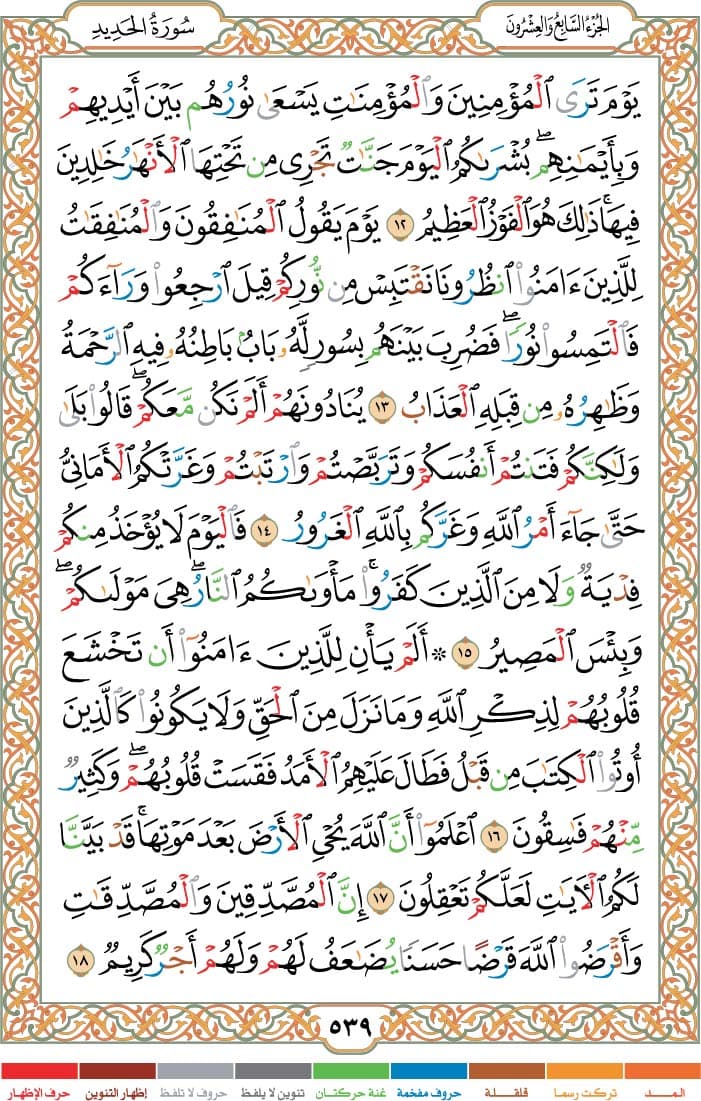 الجُزْءُ السَّابِعُ وَالعِشْرُونَ
سُورَةُ الحَدِيدِ
يَوْمَ تَرَى ٱلْمُؤْمِنِينَ وَٱلْمُؤْمِنَٰتِ يَسْعَىٰ نُورُهُم بَيْنَ أَيْدِيهِمْ
وَبِأَيْمَٰنِهِمۖ بُشْرَىٰكُمُ ٱلْيَوْمَ جَنَّٰتٌ تَجْرِى مِن تَحْتِهَا ٱلْأَنْهَٰرُ خَٰلِدِينَ
فِيهَاۚ ذَٰلِكَ هُوَ ٱلْفَوْزُ ٱلْعَظِيمُ ١٢ يَوْمَ يَقُولُ ٱلْمُنَٰفِقُونَ وَٱلْمُنَٰفِقَٰتُ
لِلَّذِينَ ءَامَنُوا۟ ٱنظُرُونَا نَقْتَبِسْ مِن نُّورِكُمْ قِيلَ ٱرْجِعُوا۟ وَرَآءَكُمْ
فَٱلْتَمِسُوا۟ نُورًاۖ فَضُرِبَ بَيْنَهُم بِسُورٍ لَّهُۥ بَابٌۢ بَاطِنُهُۥ فِيهِ ٱلرَّحْمَةُ
وَظَٰهِرُهُۥ مِن قِبَلِهِ ٱلْعَذَابُ ١٣ يُنَادُونَهُمْ أَلَمْ نَكُن مَّعَكُمْۖ قَالُوا۟ بَلَىٰ
وَلَٰكِنَّكُمْ فَتَنتُمْ أَنفُسَكُمْ وَتَرَبَّصْتُمْ وَٱرْتَبْتُمْ وَغَرَّتْكُمُ ٱلْأَمَانِىُّ
حَتَّىٰ جَآءَ أَمْرُ ٱللَّهِ وَغَرَّكُم بِٱللَّهِ ٱلْغَرُورُ ١٤ فَٱلْيَوْمَ لَا يُؤْخَذُ مِنكُمْ
فِدْيَةٌ وَلَا مِنَ ٱلَّذِينَ كَفَرُوا۟ۚ مَأْوَىٰكُمُ ٱلنَّارُۖ هِىَ مَوْلَىٰكُمْۖ
وَبِئْسَ ٱلْمَصِيرُ ١٥ ۞ أَلَمْ يَأْنِ لِلَّذِينَ ءَامَنُوٓا۟ أَن تَخْشَعَ
قُلُوبُهُمْ لِذِكْرِ ٱللَّهِ وَمَا نَزَلَ مِنَ ٱلْحَقِّ وَلَا يَكُونُوا۟ كَٱلَّذِينَ
أُوتُوا۟ ٱلْكِتَٰبَ مِن قَبْلُ فَطَالَ عَلَيْهِمُ ٱلْأَمَدُ فَقَسَتْ قُلُوبُهُمْۖ وَكَثِيرٌ
مِّنْهُمْ فَٰسِقُونَ ١٦ ٱعْلَمُوٓا۟ أَنَّ ٱللَّهَ يُحْىِ ٱلْأَرْضَ بَعْدَ مَوْتِهَاۚ قَدْ بَيَّنَّا
لَكُمُ ٱلْءَايَٰتِ لَعَلَّكُمْ تَعْقِلُونَ ١٧ إِنَّ ٱلْمُصَّدِّقِينَ وَٱلْمُصَّدِّقَٰتِ
وَأَقْرَضُوا۟ ٱللَّهَ قَرْضًا حَسَنًا يُضَٰعَفُ لَهُمْ وَلَهُمْ أَجْرٌ كَرِيمٌ ١٨
٥٣٩
المـــد تركت رسما قلقلة حروف مفخمة غنة حركتان تنوين لا يلفظ حروف لا تلفظ إظهار التنوين حرف الإظهار